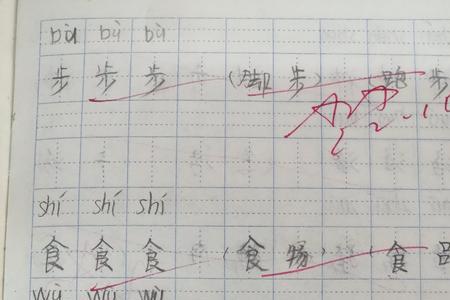 bù bù bù
步 步 步 (脚 步) (跑 步
shí shí shí
食 食 食 (食 物) (食 品
wù wù wù